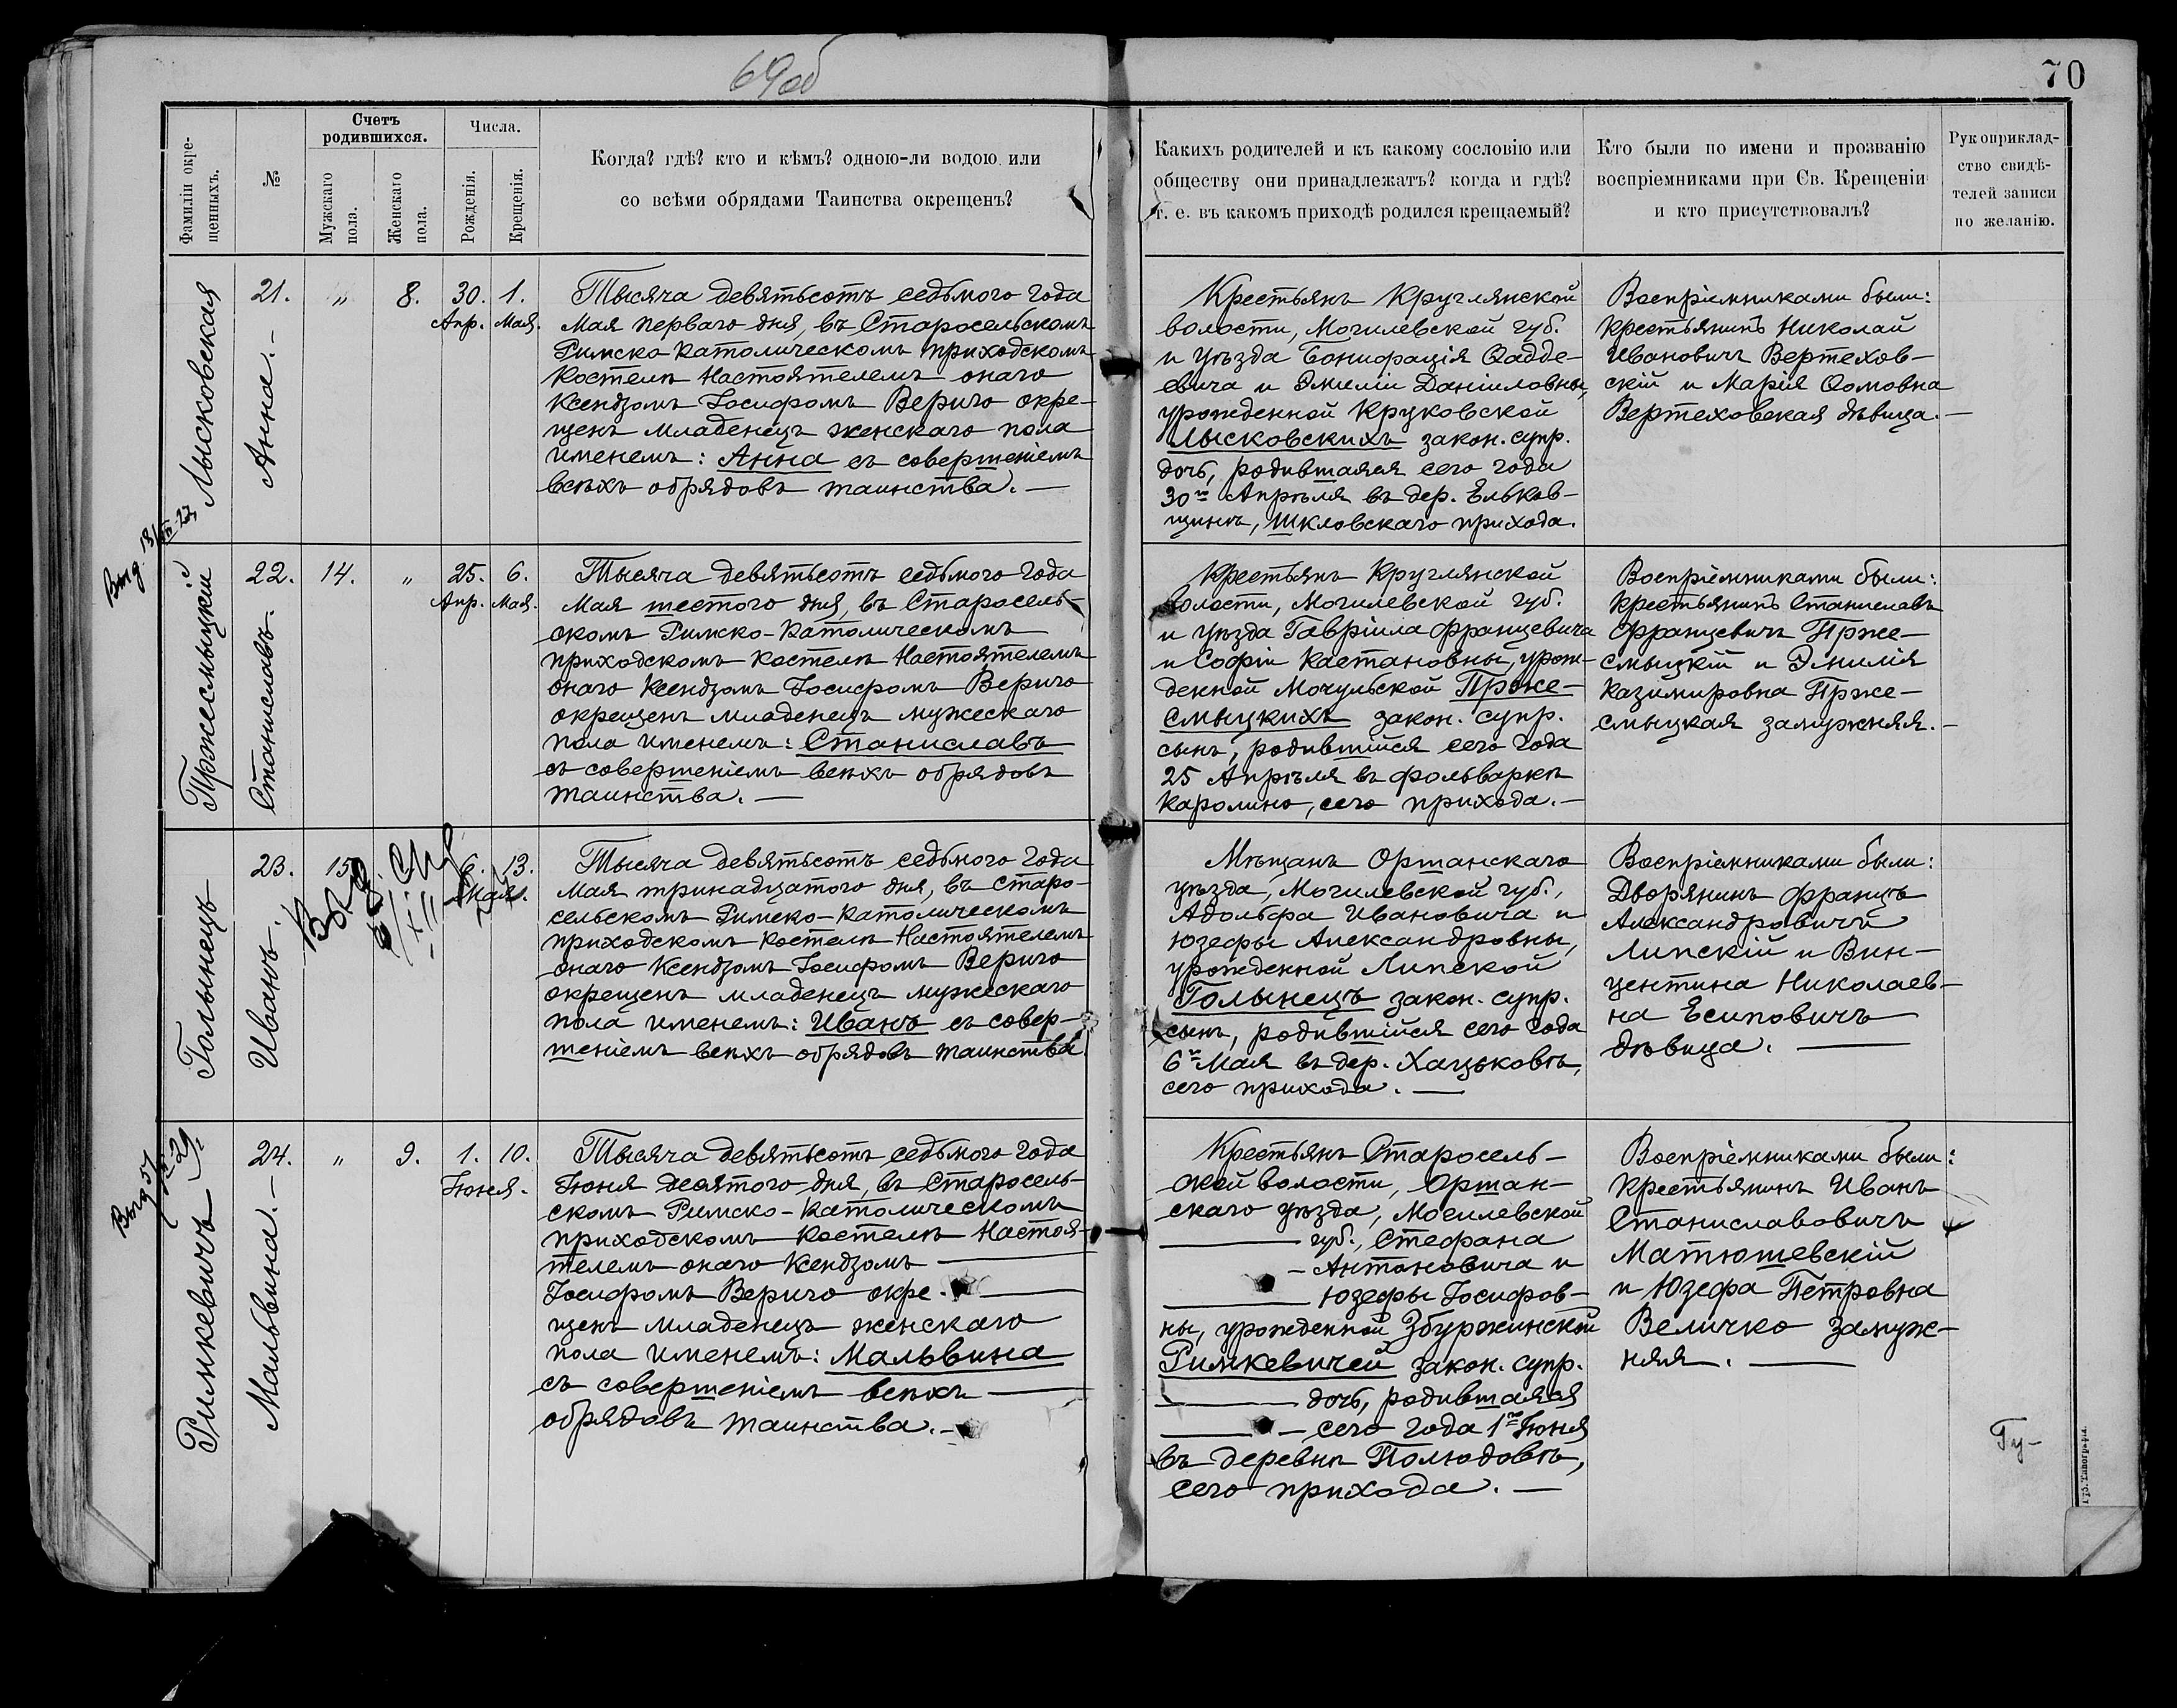 69об
70
Фамиліи окре-
щенныхъ.
№
Счетъ
родившихся.
Мужскаго
пола.
Женскаго
пола.
Числа.
Рожденія.
Крещенія.
Когда? гдѣ? кто и кѣмъ? одною-ли водою или
со всѣми обрядами Таинства окрещенъ?
Какихъ родителей и къ какому сословію или
обществу они принадлежатъ? когда и гдѣ?
т. е. въ какомъ приходѣ родился крещаемый?
Кто были по имени и прозванію
воспріемниками при Св. Крещеніи
и кто присутствовалъ?
Рукоприклад-
ство свидѣ-
телей записи
по желанію.
Лысковская
21.
Анна.—
"
8.
30.
Апр.
1.
Мая.
Тысяча девятьсотъ седьмого года
Мая перваго дня, въ Старосельскомъ
Римско-Католическомъ приходскомъ
Костелѣ Настоятелемъ онаго
Ксендзомъ Іосифомъ Вериго окре-
щенъ младенецъ женскаго пола
именемъ: Анна съ совершеніемъ
всѣхъ обрядовъ таинства.—
Крестьянъ Круглянской
волости, Могилевской губ.
и уѣзда Бонифація Ѳадде-
евича и Эмиліи Даніиловны,
урожденной Круковской
Лысковскихъ закон. супр.
дочь, родившаяся сего года
30го Апрѣля въ дер. Ельков-
щинѣ, Шкловскаго прихода.
Воспріемниками были:
крестьянинъ Николай
Ивановичъ Вертехов-
скій и Марія Ѳомовна
Вертеховская дѣвица.—
Пржесмыцкій
22.
Станиславъ.
14.
"
25.
Апр.
6.
Мая.
Тысяча девятьсотъ седьмого года
Мая шестого дня, въ Старосель-
скомъ Римско-Католическомъ
приходскомъ костелѣ Настоятелемъ
онаго Ксендзомъ Іосифомъ Вериго
окрещенъ младенецъ мужескаго
пола именемъ: Станиславъ
съ совершеніемъ всѣхъ обрядовъ
таинства.—
Крестьянъ Круглянской
волости, Могилевской губ.
и уѣзда Гавріила Францевича
и Софіи Каетановны, урож-
денной Мочульской Прже-
смыцкихъ закон. супр.
сынъ, родившійся сего года
25 Апрѣля въ фольваркѣ
Каролино, сего прихода.—
Воспріемниками были:
крестьянинъ Станиславъ
Францевичъ Прже-
смыцкій и Эмилія
Казимировна Прже-
смыцкая замужняя.—
Голынецъ
23.
Иванъ.
15
6.
13.
Мая.
Тысяча девятьсотъ седьмого года
Мая тринадцатого дня, въ Старо-
сельскомъ Римско-Католическомъ
приходскомъ костелѣ Настоятелемъ
онаго Ксендзомъ Іосифомъ Вериго
окрещенъ младенецъ мужескаго
пола именемъ: Иванъ съ совер-
шеніемъ всѣхъ обрядовъ таинства.
Мѣщанъ Оршанскаго
уѣзда, Могилевской губ.,
Адольфа Ивановича и
Юзефы Александровны,
урожденной Липской
Голынецъ закон. супр.
сынъ, родившійся сего года
6го Мая въ дер. Хацьковѣ,
сего прихода.—
Воспріемниками были:
Дворянинъ Францъ
Александровичъ
Липскій и Вин-
центина Николаев-
на Есиповичъ
дѣвица.—
Римкевичъ
24.
Мальвина.—
"
9.
1.
10.
Іюня.
Тысяча девятьсотъ седьмого года
Іюня десятого дня, въ Старосель-
скомъ Римско-Католическомъ
приходскомъ костелѣ Настоя-
телемъ онаго Ксендзомъ —
Іосифомъ Вериго окре-
щенъ младенецъ женскаго
пола именемъ: Мальвина
съ совершеніемъ всѣхъ —
обрядовъ таинства.—
Крестьянъ Старосель-
ской волости, Оршан-
скаго уѣзда, Могилевской
— губ., Стефана
— Антоновича и
— Юзефы Іосифов-
ны, урожденной Збуржинской
Римкевичей закон. супр.
— дочь, родившаяся
— сего года 1го Іюня
въ деревнѣ Полюдовѣ,
сего прихода.—
Воспріемниками были:
Крестьянинъ Иванъ
Станиславовичъ
Матюшевскій
и Юзефа Петровна
Величко замуж-
няя.—
Гу-
Губ. Типографія.